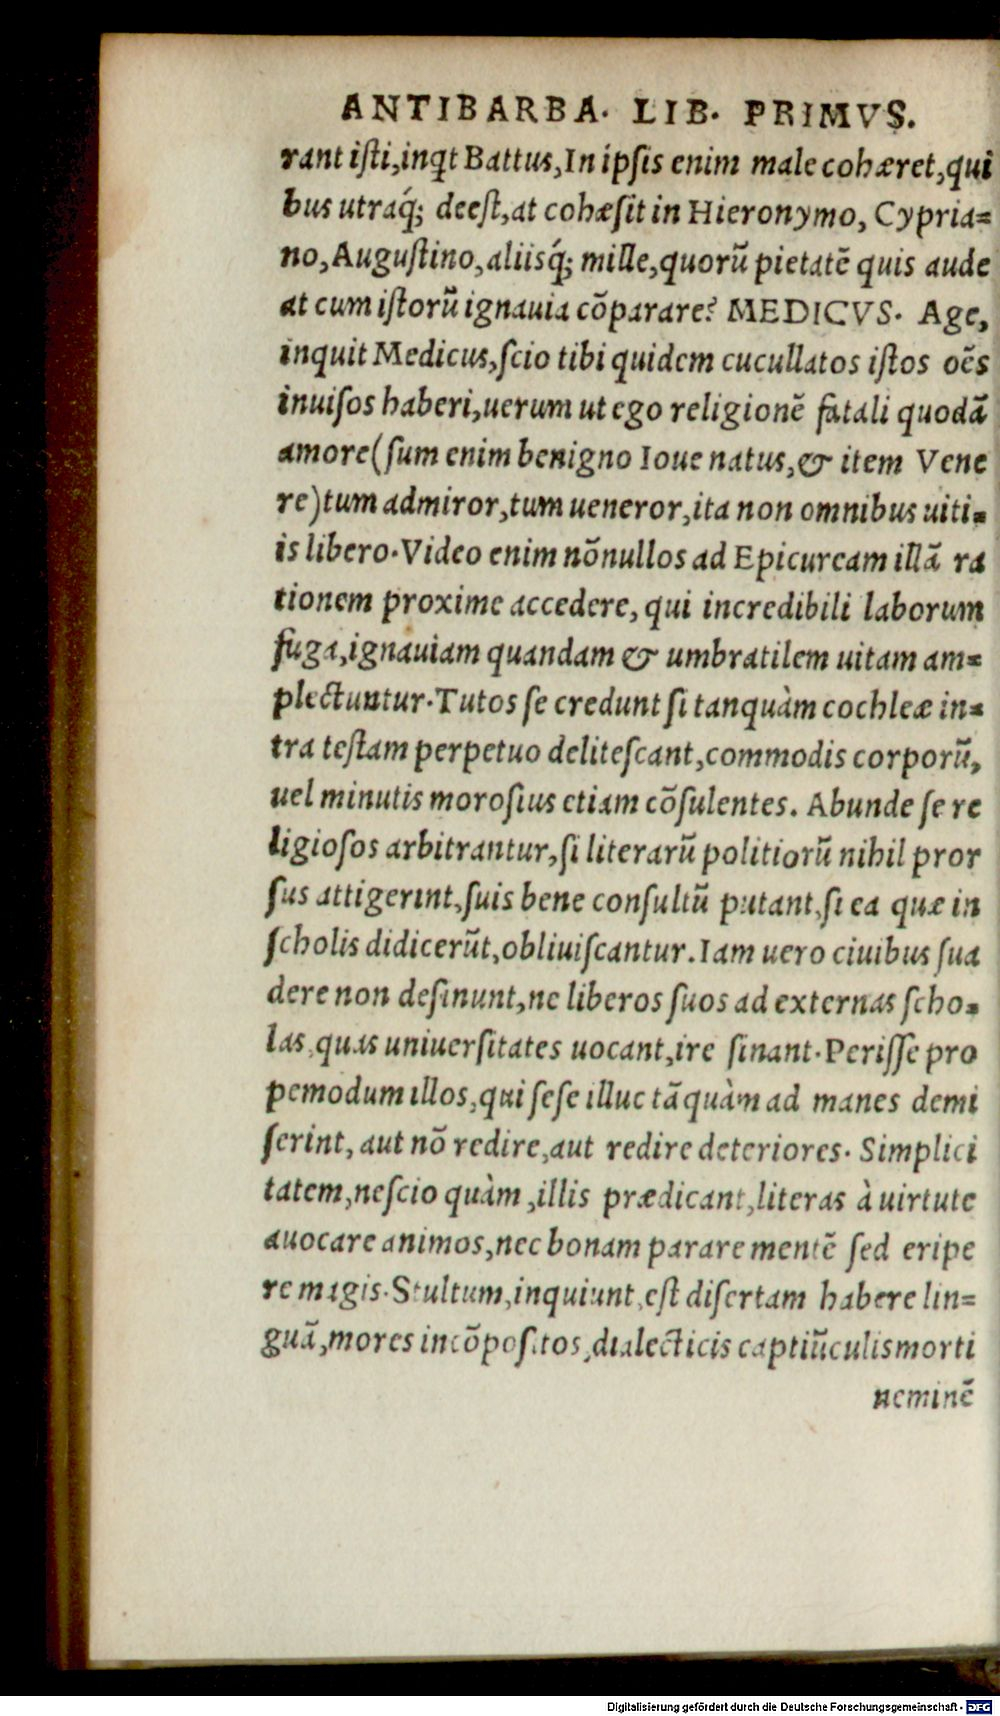 ANTIBARBA. LIB. PRIMVS.
rant iſti,inqͥt Battus,In ipſis enim male cohæret,qui
bus utraq́; deeſt,at cohæſit in Hieronymo, Cypria=
no,Auguſtino,aliisq́; mille,quorũ pietatẽ quis aude
at cum iſtorũ ignauia cõparare? MEDICVS. Age,
inquit Medicus,ſcio tibi quidem cucullatos iſtos oẽs
inuiſos haberi,uerum ut ego religionẽ fatali quodã
amore(ſum enim benigno Ioue natus,& item Vene
re)tum admiror,tum ueneror,ita non omnibus uiti=
is libero.Video enim nõnullos ad Epicuream illã ra
tionem proxime accedere, qui incredibili laborum
fuga,ignauiam quandam & umbratilem uitam am=
plectuntur.Tutos ſe credunt ſi tanquàm cochleæ in=
tra teſtam perpetuo deliteſcant,commodis corporũ,
uel minutis moroſius etiam cõſulentes. Abunde ſe re
ligioſos arbitrantur,ſi literarũ politiorũ nihil pror
ſus attigerint,ſuis bene conſultũ putant,ſi ea quæ in
ſcholis didicerũt,obliuiſcantur.Iam uero ciuibus ſua
dere non deſinunt,ne liberos ſuos ad externas ſcho=
las,quas uniuerſitates uocant,ire ſinant.Periſſe pro
pemodum illos,qui ſeſe illuc tãquàm ad manes demi
ſerint, aut nõ redire,aut redire deteriores. Simplici
tatem,neſcio quàm ,illis prædicant,literas à uirtute
auocare animos,nec bonam parare mentẽ ſed eripe
re magis.Stultum,inquiunt,eſt diſertam habere lin=
guã,mores incõpoſitos,dialecticis captiũculis morti
neminẽ
Digitalisierung gefördert durch die Deutsche Forschungsgemeinschaft - DFG